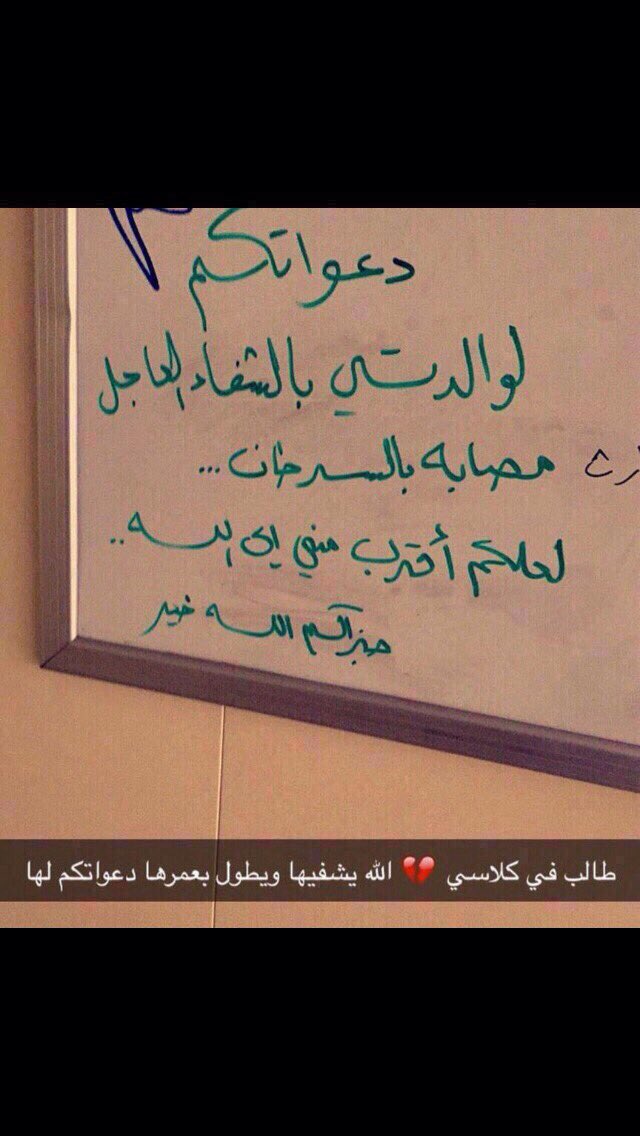 دعواتكم
لوالدتي بالشفاء العاجل
مصابه بالسرطان ...
لعلكم أقرب مني إلى الله ..
جزاكم الله خير
طالب في كلاسي 💔 الله يشفيها ويطول بعمرها دعواتكم لها